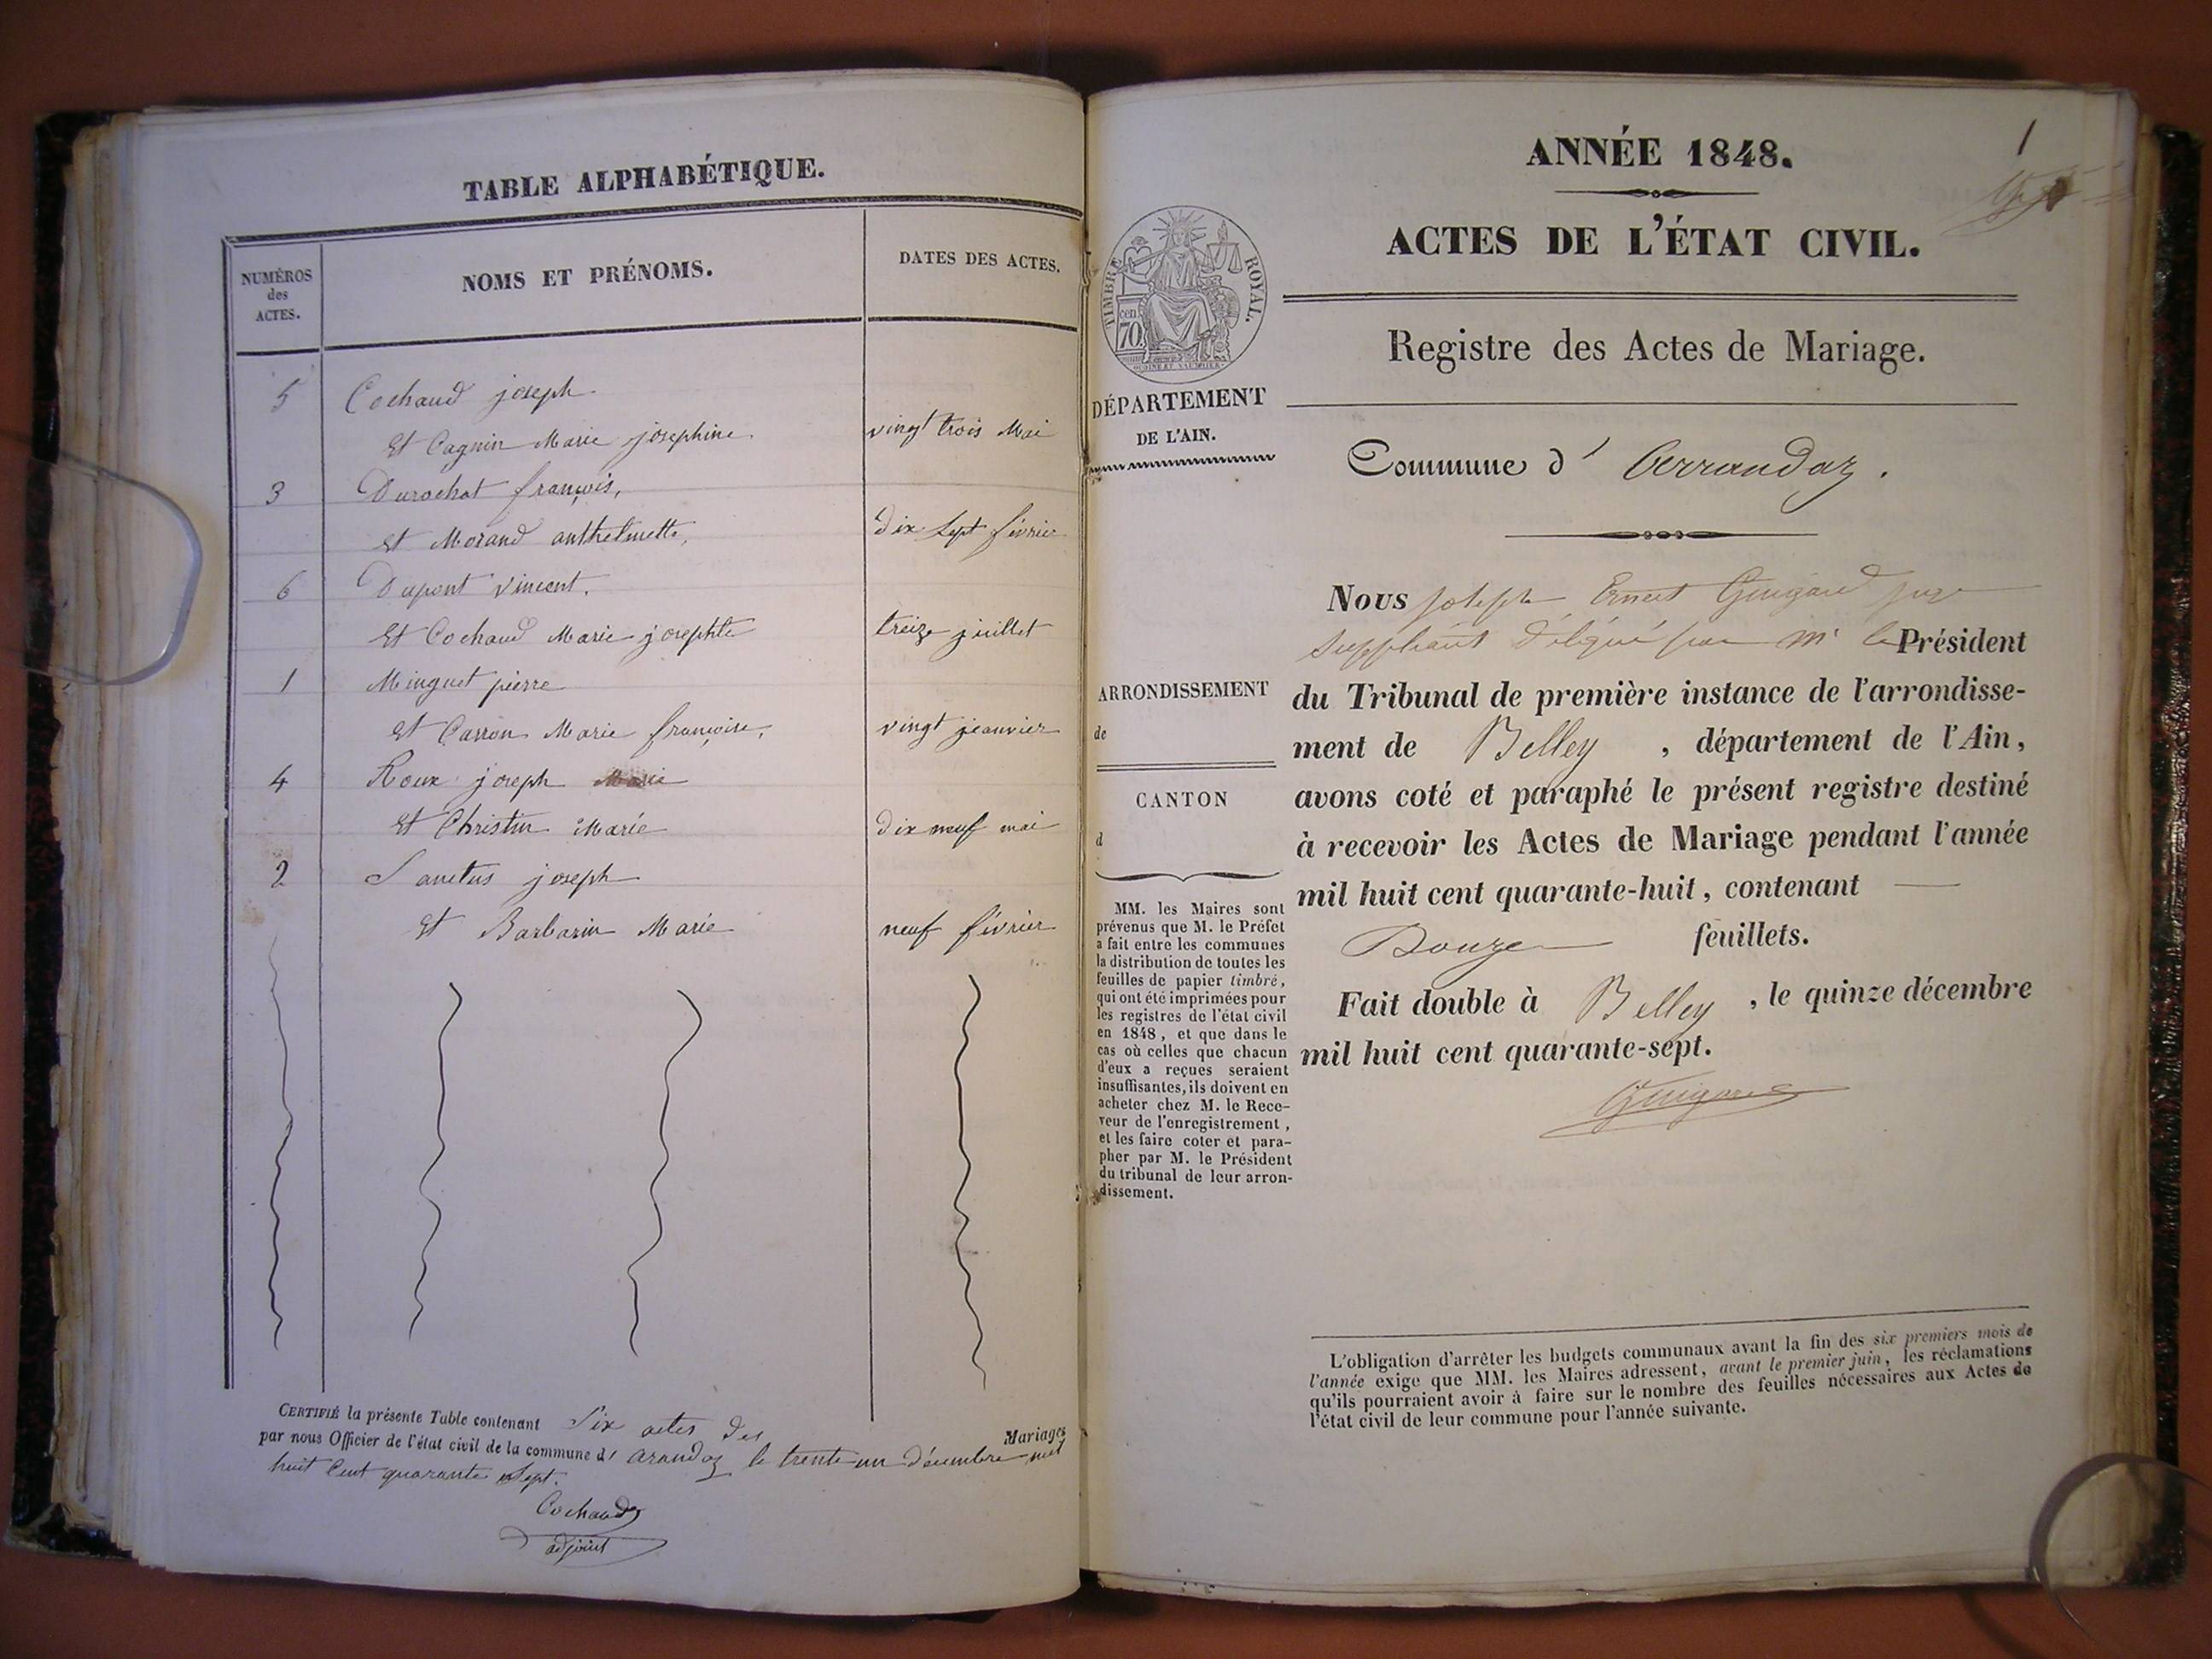 TABLE ALPHABÉTIQUE.
NUMÉROS
des
ACTES.
NOMS ET PRÉNOMS.
DATES DES ACTES.
5 Cochaud joseph
Et Cagnin Marie josephine. vingt trois Mai
3 Durochat françois,
et Morand anthelmette, dix sept février
6 Dupont vincent.
Et Cochaud Marie josephte treize juillet
1 Minguet pierre
et Carron Marie françoise, vingt jeanvier
4 Roux joseph Marie
et Christin Marie dix neuf mai
2 Sanctus joseph
et Barbarin Marie neuf février
CERTIFIÉ la présente Table contenant Six actes des Mariages
par nous Officier de l'état civil de la commune d' arandaz le trente un décembre mil
huit Cent quarante sept.
Cochaud
adjoint
1
ANNÉE 1848.
ACTES DE L'ÉTAT CIVIL.
Registre des Actes de Mariage.
TIMBRE ROYAL.
70 cen
DÉPARTEMENT
DE L'AIN.
ARRONDISSEMENT
de
CANTON
d
MM. les Maires sont
prévenus que M. le Préfet
a fait entre les communes
la distribution de toutes les
feuilles de papier timbré,
qui ont été imprimées pour
les registres de l'état civil
en 1848, et que dans le
cas où celles que chacun
d'eux a reçues seraient
insuffisantes, ils doivent en
acheter chez M. le Rece-
veur de l'enregistrement,
et les faire coter et para-
pher par M. le Président
du tribunal de leur arron-
dissement.
Commune d' Arrandaz.
Nous joseph Ernest Guigard juge
suppléant délégué par Mr le Président
du Tribunal de première instance de l'arrondisse-
ment de Belley, département de l'Ain,
avons coté et paraphé le présent registre destiné
à recevoir les Actes de Mariage pendant l'année
mil huit cent quarante-huit, contenant
Douze feuillets.
Fait double à Belley, le quinze décembre
mil huit cent quarante-sept.
Guigard
L'obligation d'arrêter les budgets communaux avant la fin des six premiers mois de
l'année exige que MM. les Maires adressent, avant le premier juin, les réclamations
qu'ils pourraient avoir à faire sur le nombre des feuilles nécessaires aux Actes de
l'état civil de leur commune pour l'année suivante.